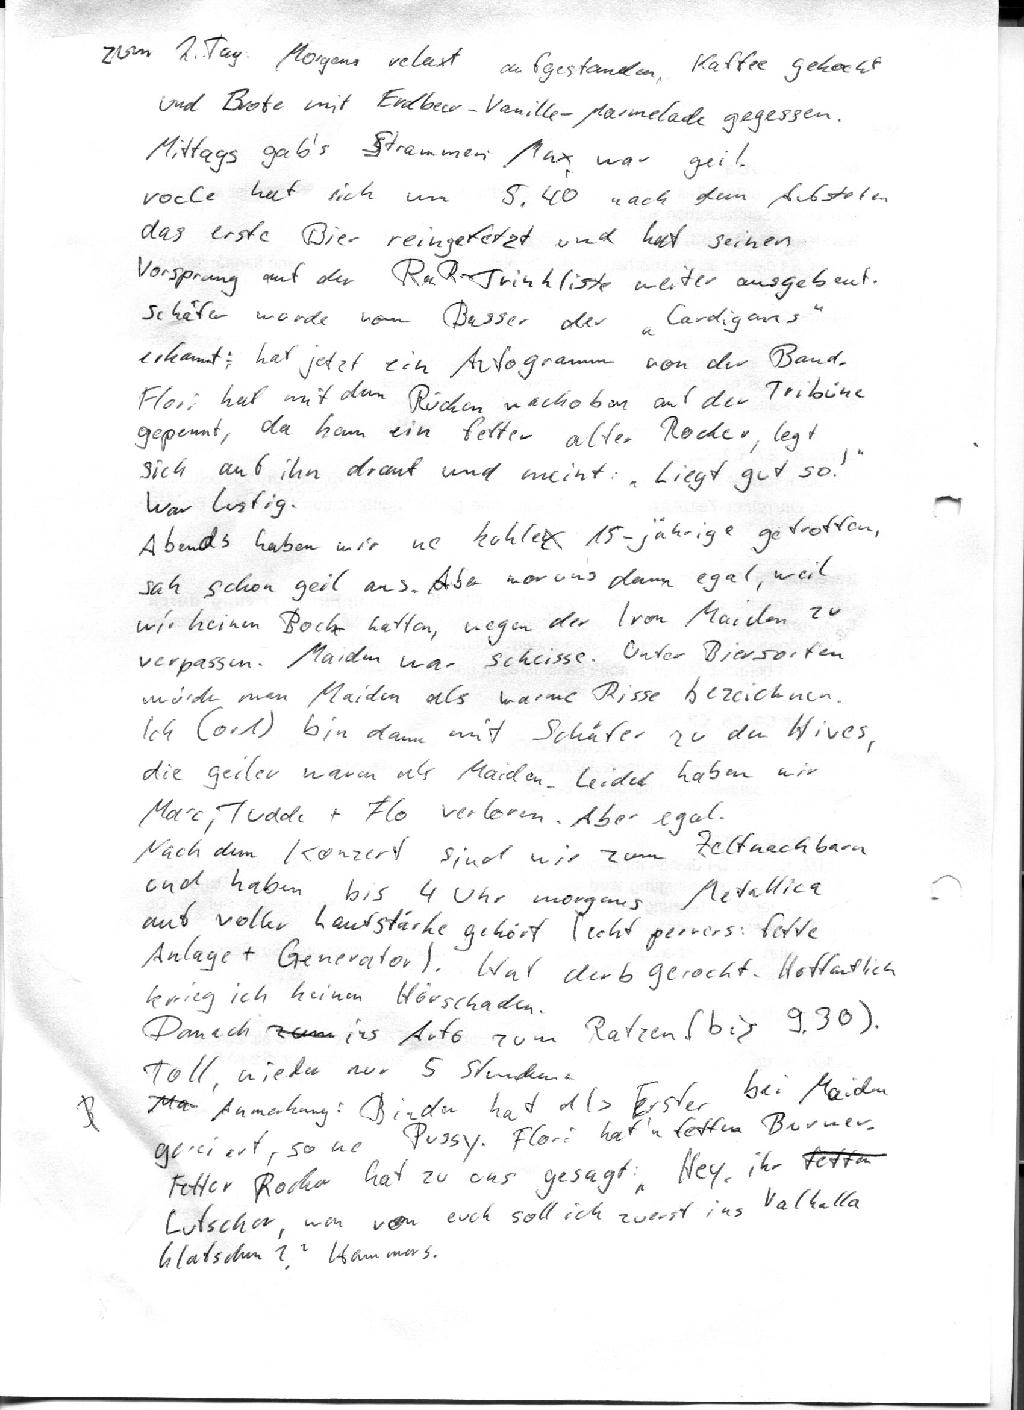 zum 2. Tag. Morgens relaxt aufgestanden, Kaffee gekocht
und Brote mit Erdbeer-Vanille-Marmelade gegessen.
Mittags gab's Strammen Max, war geil.
hat sich um 5.40 nach dem Aufstehn
das erste Bier reingefetzt und hat seinen
Vorsprung auf der RaR-Trinkliste weiter ausgebaut.
Schäfer wurde vom Basser der „Cardigans“
erkannt; hat jetzt ein Autogramm von der Band.
Flori hat mit dem Rücken nachoben auf der Tribüne
gepennt, da kam ein fetter alter Rocker, legt
sich auf ihn drauf und meint: „Liegt gut so!“
War lustig.
Abends haben wir ne 15-jährige getroffen,
sah schon geil aus. Aber war uns dann egal, weil
wir keinen Bock hatten, wegen der Iron Maiden zu
verpassen. Maiden war scheisse. Unter Biersorten
würde man Maiden als warme Pisse bezeichnen.
Ich (orl) bin dann mit Schäfer zu den Hives,
die geiler waren als Maiden. Leider haben wir
Marc, + Flo verloren. Aber egal.
Nach dem Konzert sind wir zum Zeltnachbarn
und haben bis 4 Uhr morgens Metallica
auf voller Lautstärke gehört (echt pervers: fette
Anlage + Generator). Hat derb gerockt. Hoffentlich
krieg ich keinen Hörschaden.
Danach zum ins Auto zum Ratzen (bis 9.30).
Toll, wieder nur 5 Stunden.
Anmerkung: Binder hat als Erster bei Maiden
gereiert, so ne Pussy. Flori hat'n fetten Burner.
Fetter Rocker hat zu uns gesagt: „Hey, ihr fetten
Lutscher, wen von euch soll ich zuerst ins Valhalla
klatschen?“ Hammers.